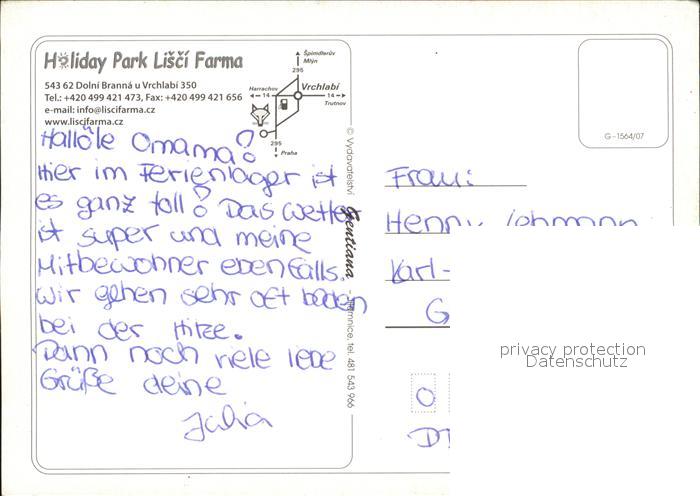 Holiday Park Liščí Farma
543 62 Dolní Branná u Vrchlabí 350
Tel.: +420 499 421 473, Fax: +420 499 421 656
e-mail: info@liscifarma.cz
www.liscifarma.cz
Špindlerův
Mlýn
295
Harrachov
Vrchlabí
14
14
Trutnov
295
Praha
Halloле Omama!
Hier im Ferienlager ist
es ganz toll! Das Wetter
ist super und meine
Mitbewohner ebenfalls.
Wir gehen sehr oft baden
bei der Hitze.
Dann noch viele liebe
Grüße deine
Julia
© Vydavatelství Gentiana - Jilemnice, tel. 481 543 966
G-1564/07
Frau:
Henny Lehmann
Karl-
G
O
privacy protection
Datenschutz